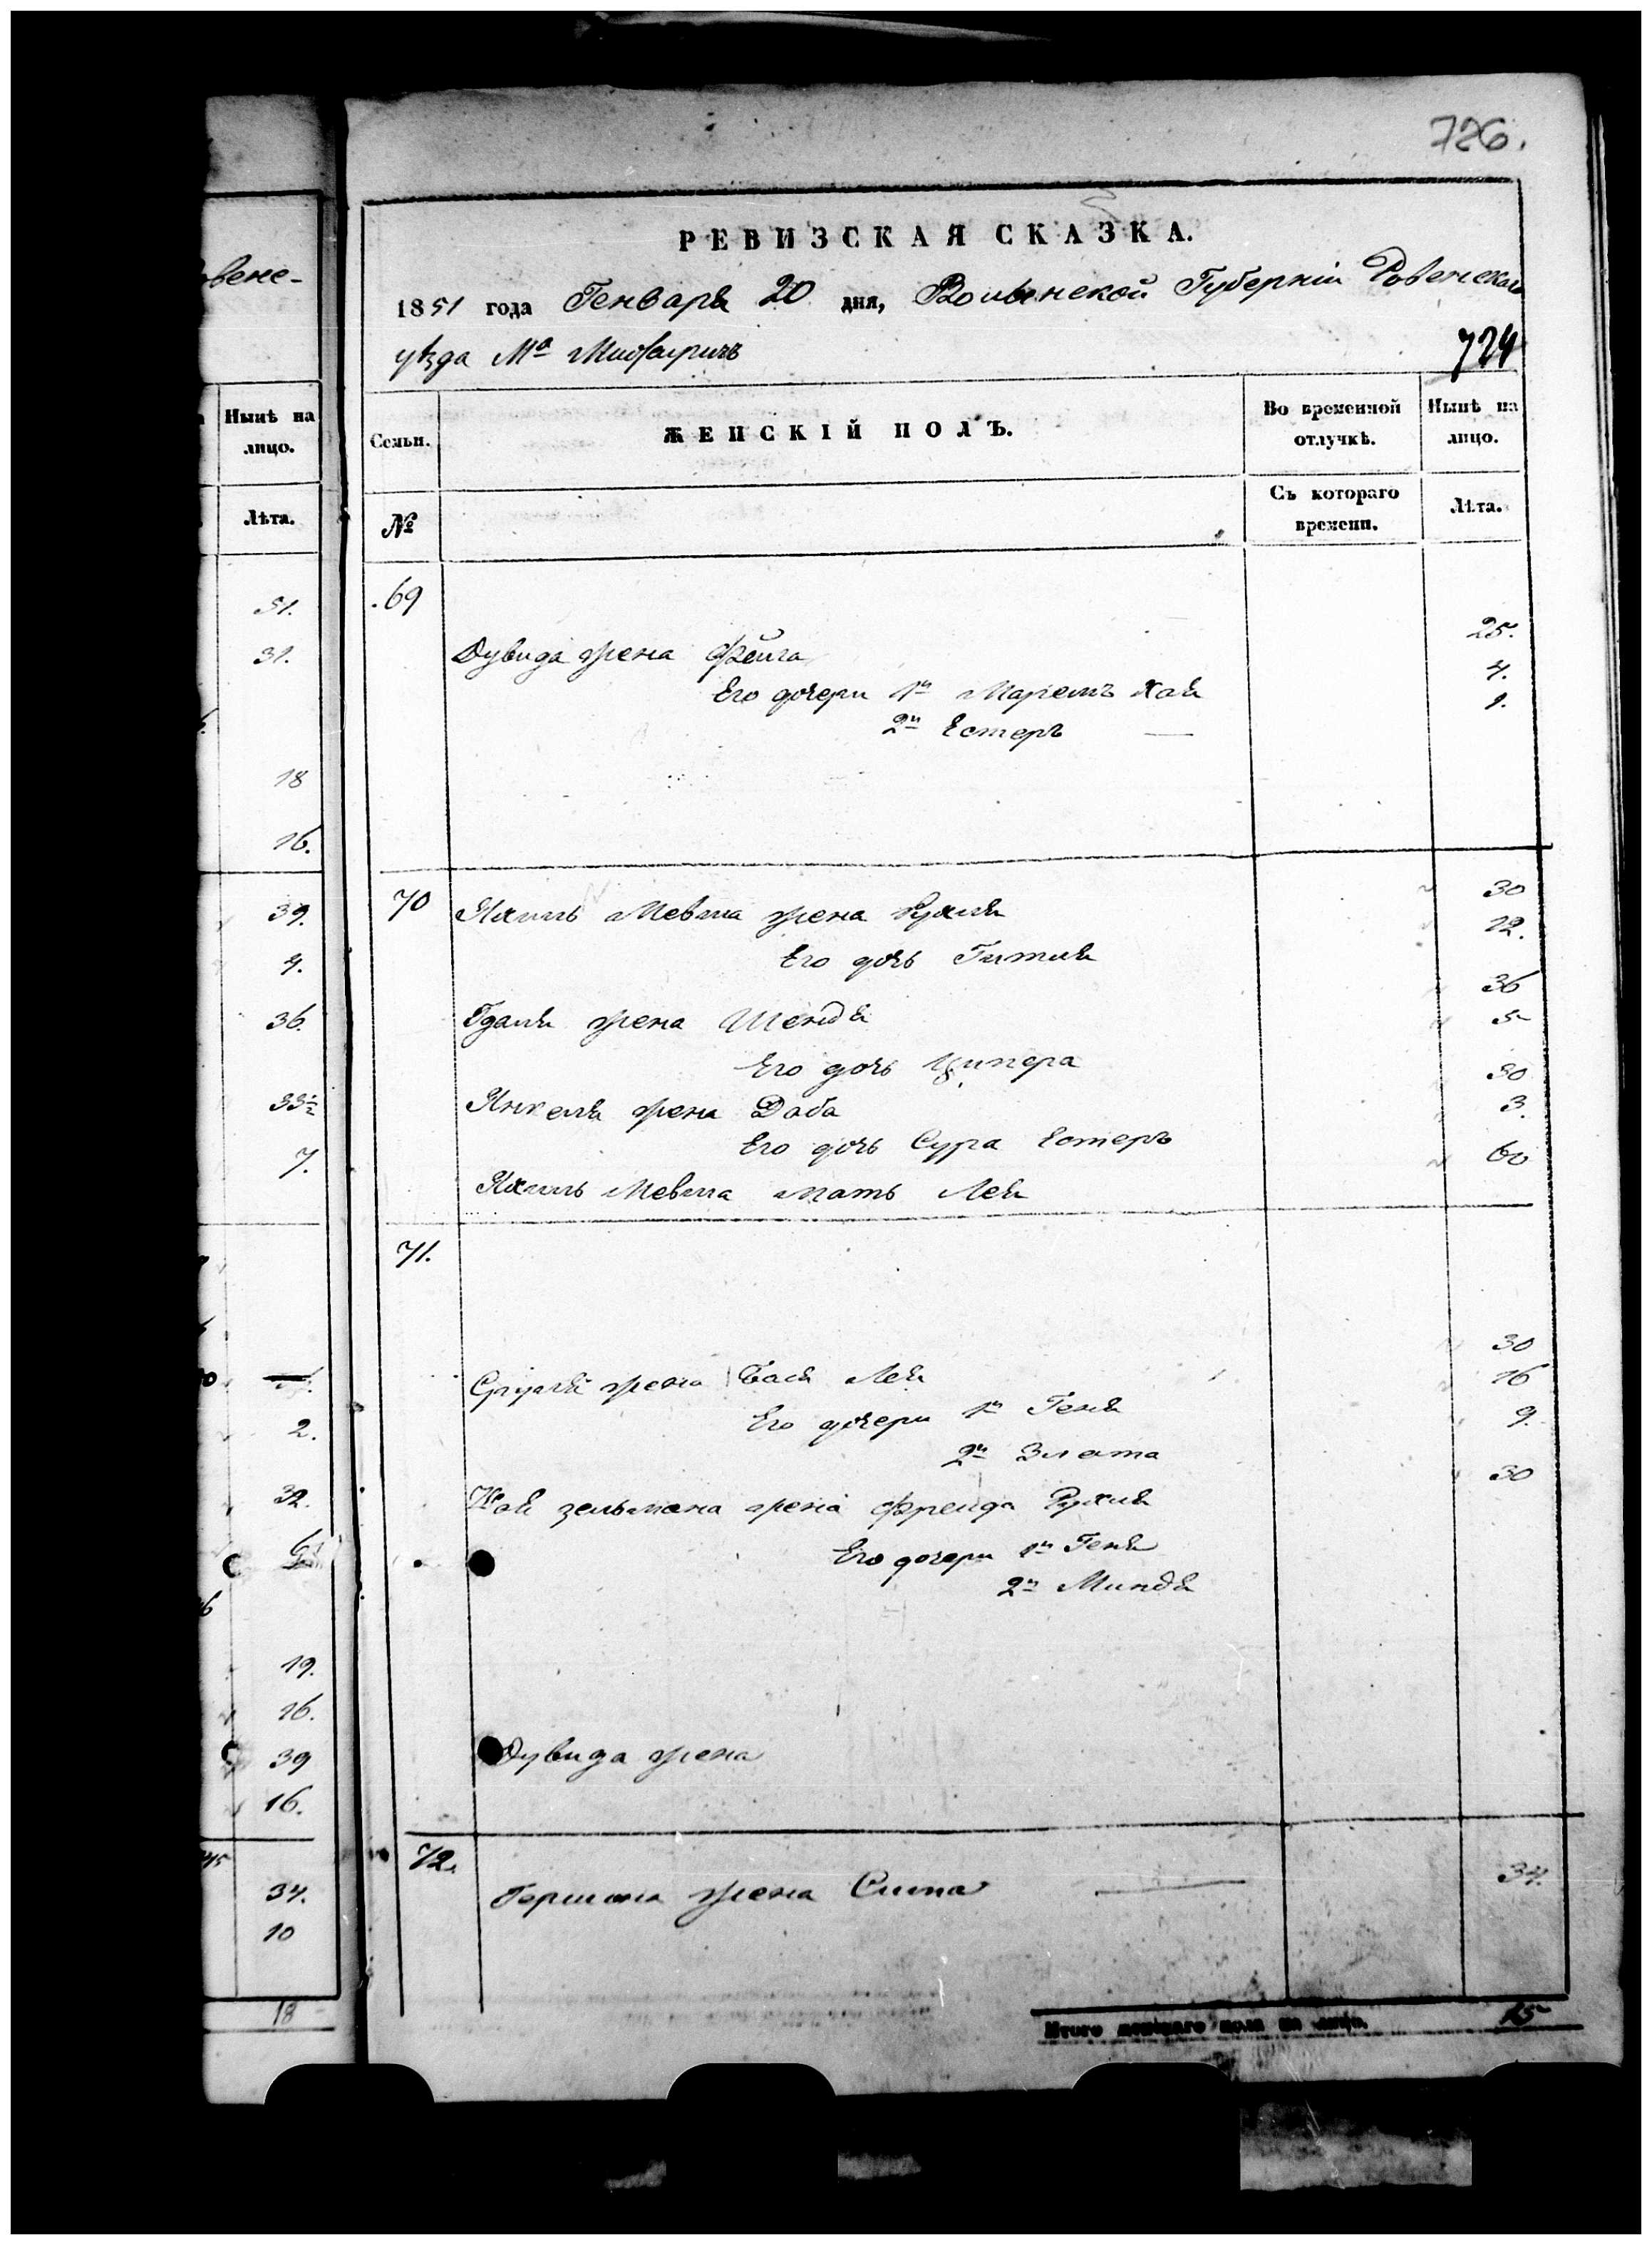 726.
РЕВИЗСКАЯ СКАЗКА.
1851 года Генваря 20 дня, Волынской Губерніи Ровенскаго
уѣзда Мѣ Межиричъ
724
Семьи.
ЖЕНСКІЙ ПОЛЪ.
Во временной отлучкѣ.
Нынѣ на лицо.
№
Съ котораго времени.
Лѣта.
69
Дувида жена Фейга 25.
Его дочери 1я Маремъ Хая 4.
2я Естеръ — 1.
70
Жена Рухля 30
Его дочь Гитля 12.
Гдаля жена Шендя 36
Его дочь Ципера 5
Янкеля жена Доба 30
Его дочь Сура Естеръ 3.
мать Лея 60
71.
Сруля жена Бася Лея 30
Его дочери 1я Геня 16
2я Злата 9.
зельмана жена Фрейда Рухля 30
Его дочери 1я Геня
2я Миндя
Дувида жена
72.
Гершка жена Сима — 34.
Итого женскаго пола на лицо. 15
вене-
Нынѣ на лицо.
Лѣта.
51.
31.
18
16.
39.
4.
36.
33½
7.
2.
32.
19.
16.
39
16.
34.
10
18